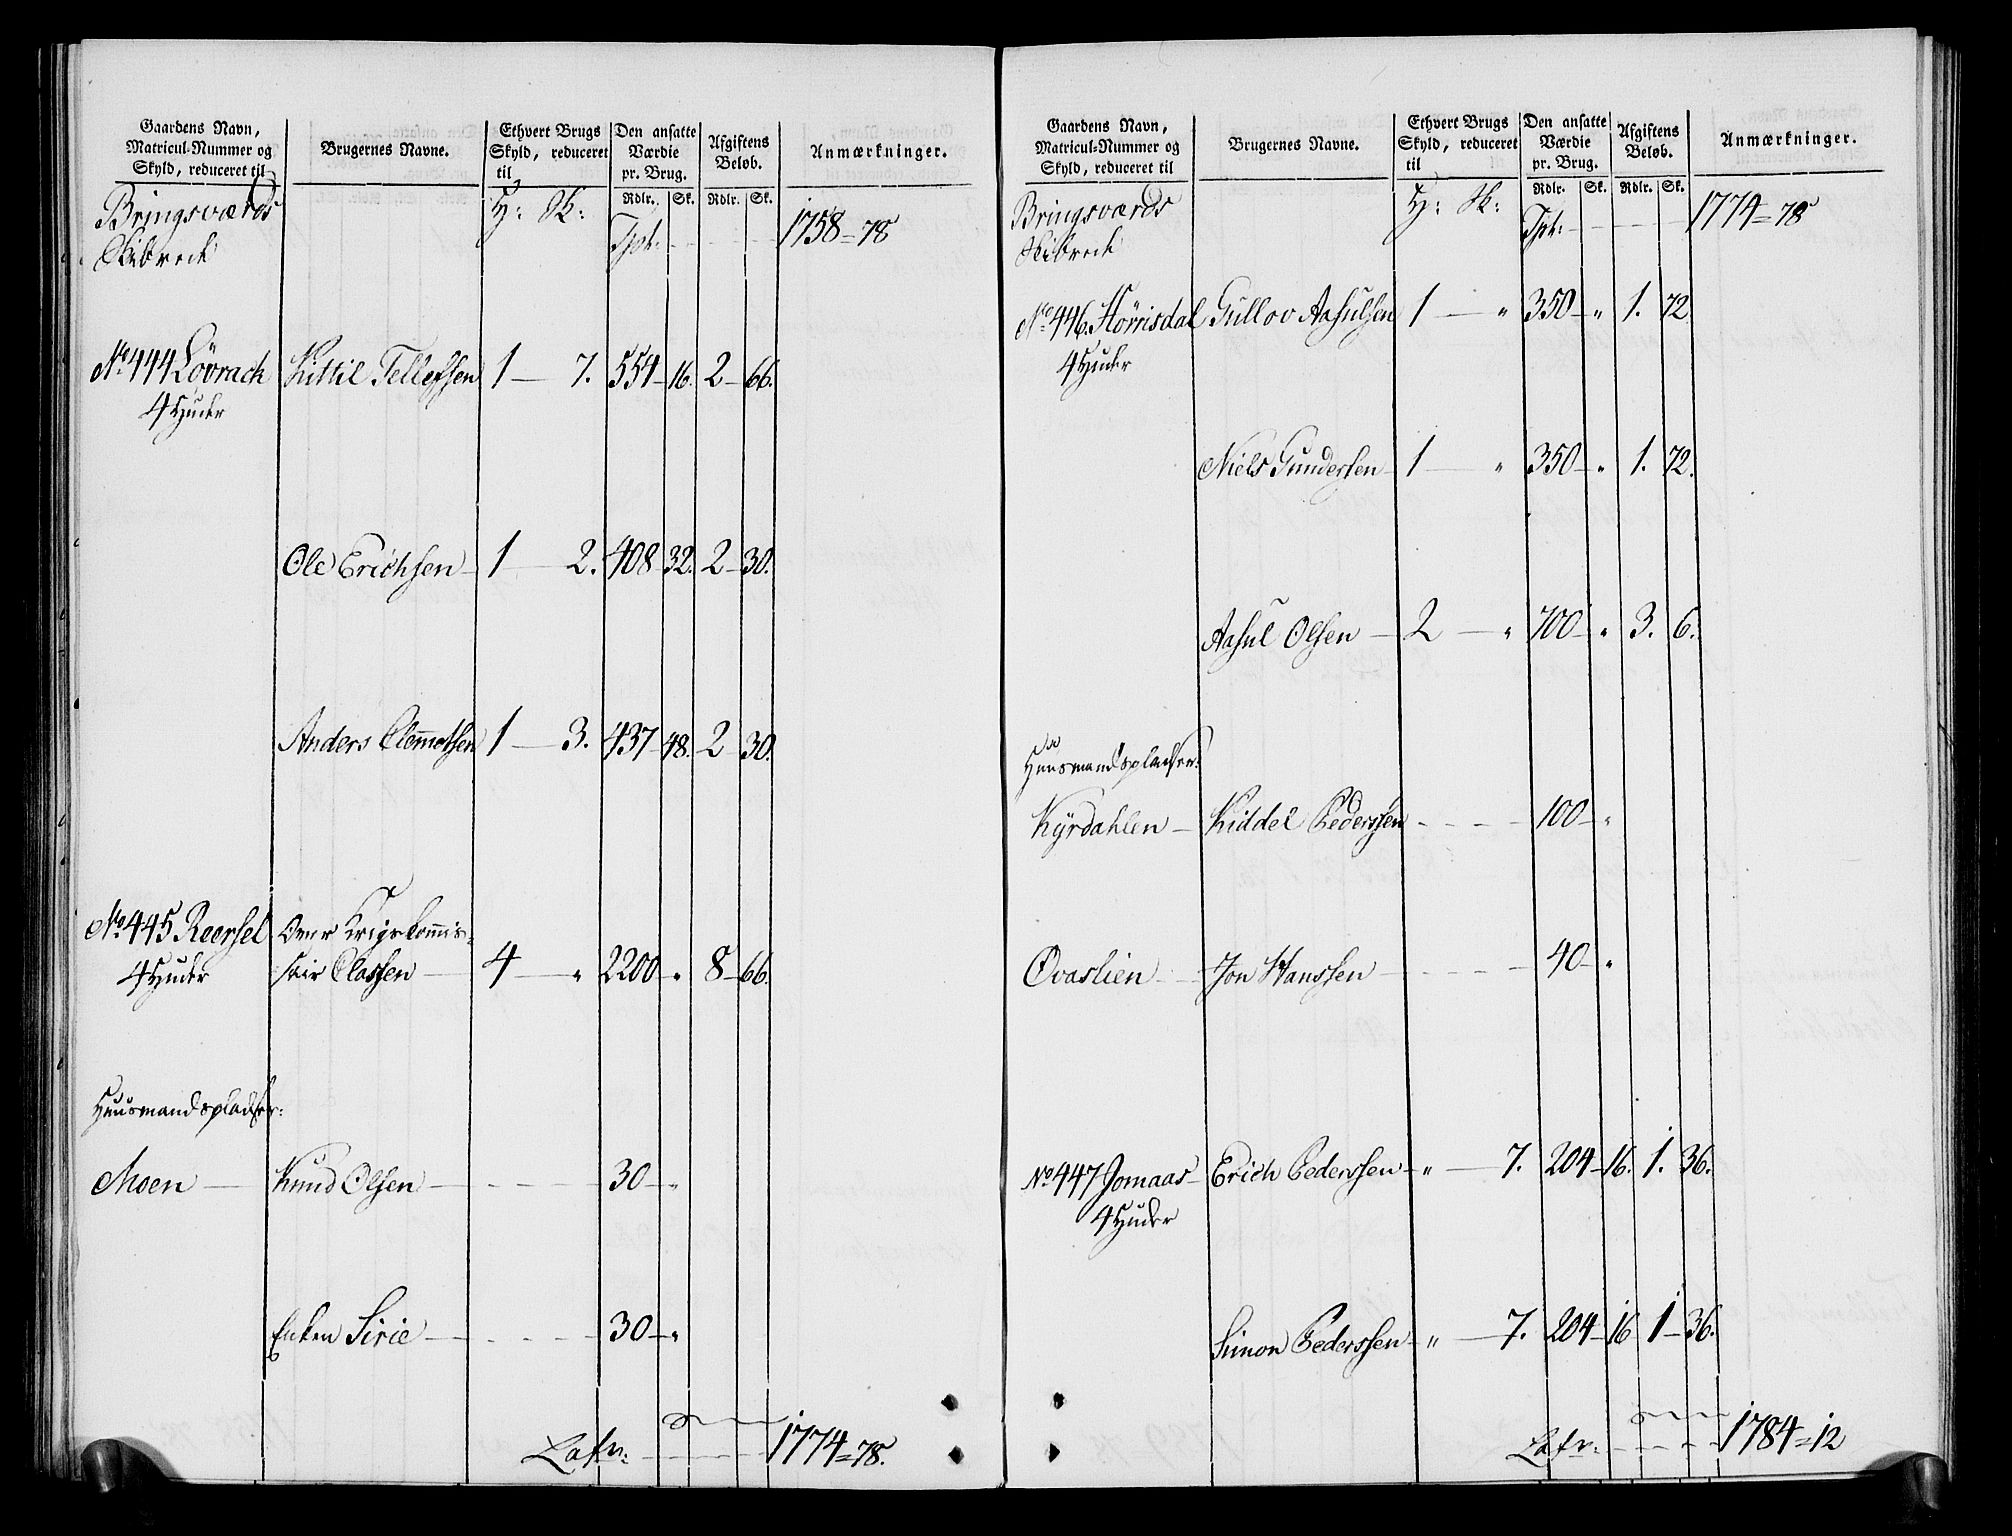 Gaardens Navn, Matricul-Nummer og Skyld, reduceret til
Brugernes Navne.
Ethvert Brugs Skyld, reduceret til
Den ansatte Værdie pr. Brug.
Afgiftens Beløb.
Anmærkninger.
Rdlr. Sk. Rdlr. Sk.
Bringsværds H: Sk:
Skibrede Tpt: 1758=78
No 444 Lövrach Kittil Tellefsen 1 — 7. 554 — 16. 2 — 66.
4 Huder
Ole Erichsen — 1 — 2. 408 — 32. 2 — 30.
Anders Clem̅etsen 1 — 3. 437 — 48. 2 30.
No 445 Reersel Over Krigskom̅is=
4 Huder sair Classen — 4 — " 2200 — " 8 — 66.
Huusmandspladser:
Moen — Knud Olsen — 30 — "
Enken Sirie — 30 — "
Lafr: 1774=78.
Gaardens Navn, Matricul-Nummer og Skyld, reduceret til
Brugernes Navne.
Ethvert Brugs Skyld, reduceret til
Den ansatte Værdie pr. Brug.
Afgiftens Beløb.
Anmærkninger.
Rdlr. Sk. Rdlr. Sk.
Bringsværds H: Sk:
Skibrede Tpt: 1774=78
No 446. Hörrisdal Gullov Aasulsen 1 — " 350 — " 1. 72
4 Huder
Niels Gundersen — 1 — " 350 — " 1. 72.
Aasul Olsen — 2 — " 700 — " 3. 6.
Huusmandspladser:
Kyrdahlen — Kiddel Pederssen — 100 — "
Ovaslien — Jon Hanssen — 40 — "
No 447 Jomaas — Erich Pederssen — " — 7. 204 — 16. 1. 36.
4 Huder
Simon Pederssen — " — 7. 204 — 16 1 — 36.
Lafr: 1784=12